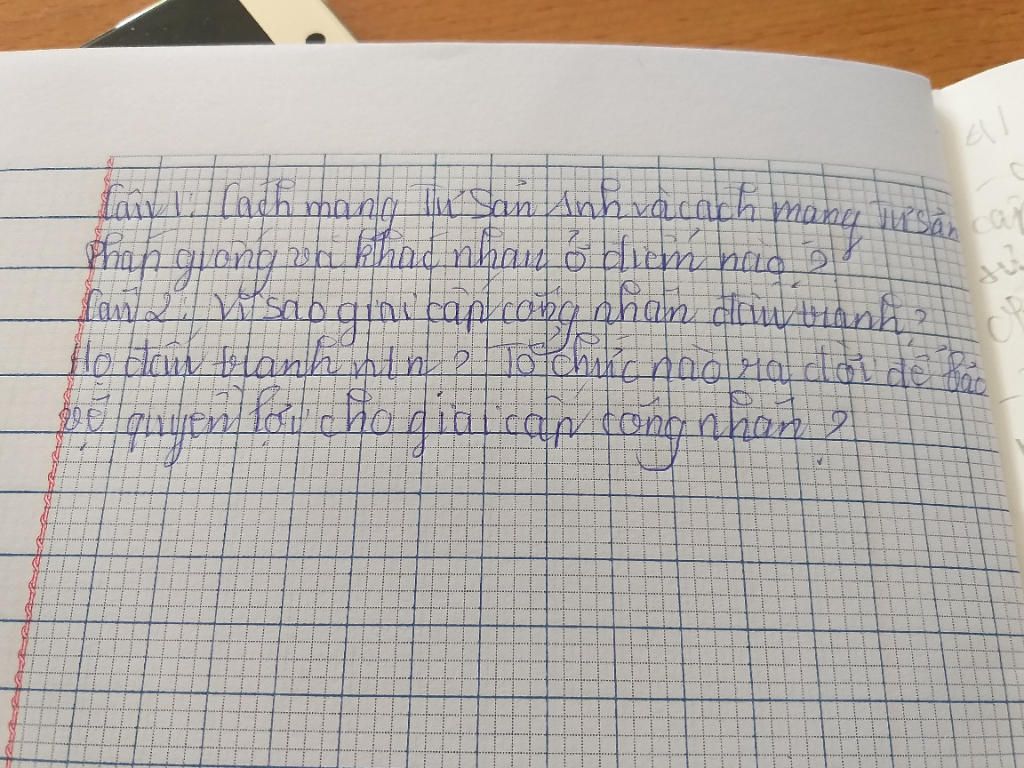 Câu 1: Cách mạng Tư Sản Anh và cách mạng Tư sản
Pháp giống và khác nhau ở điểm nào?
Câu 2: Vì sao giai cấp công nhân đấu tranh?
Họ đấu tranh ntn? Tổ chức nào ra đời để bảo
vệ quyền lợi cho giai cấp công nhân?